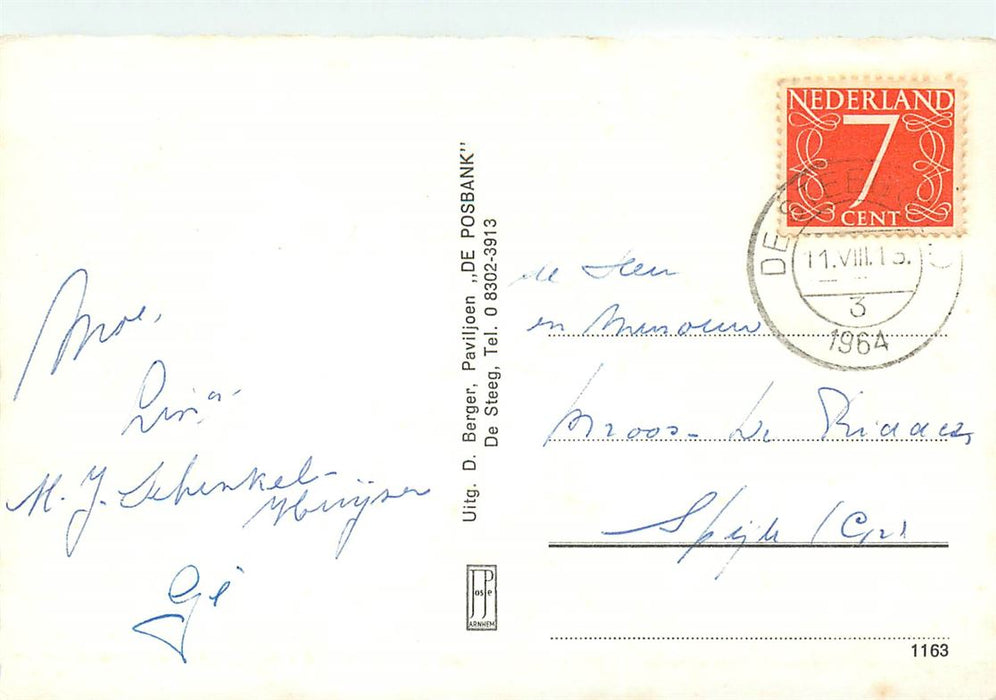 Moe,
Lini a-
M. J. Schenkel-
Huijser
Gé
Uitg. D. Berger, Paviljoen „DE POSBANK”
De Steeg, Tel. 0 8302-3913
JosPe
ARNHEM
NEDERLAND
7
CENT
DE STEEG
11.VIII.15.
3
1964
de Heer
en Mevrouw
Kroos- De Ridder
Spijk (Gr)
1163